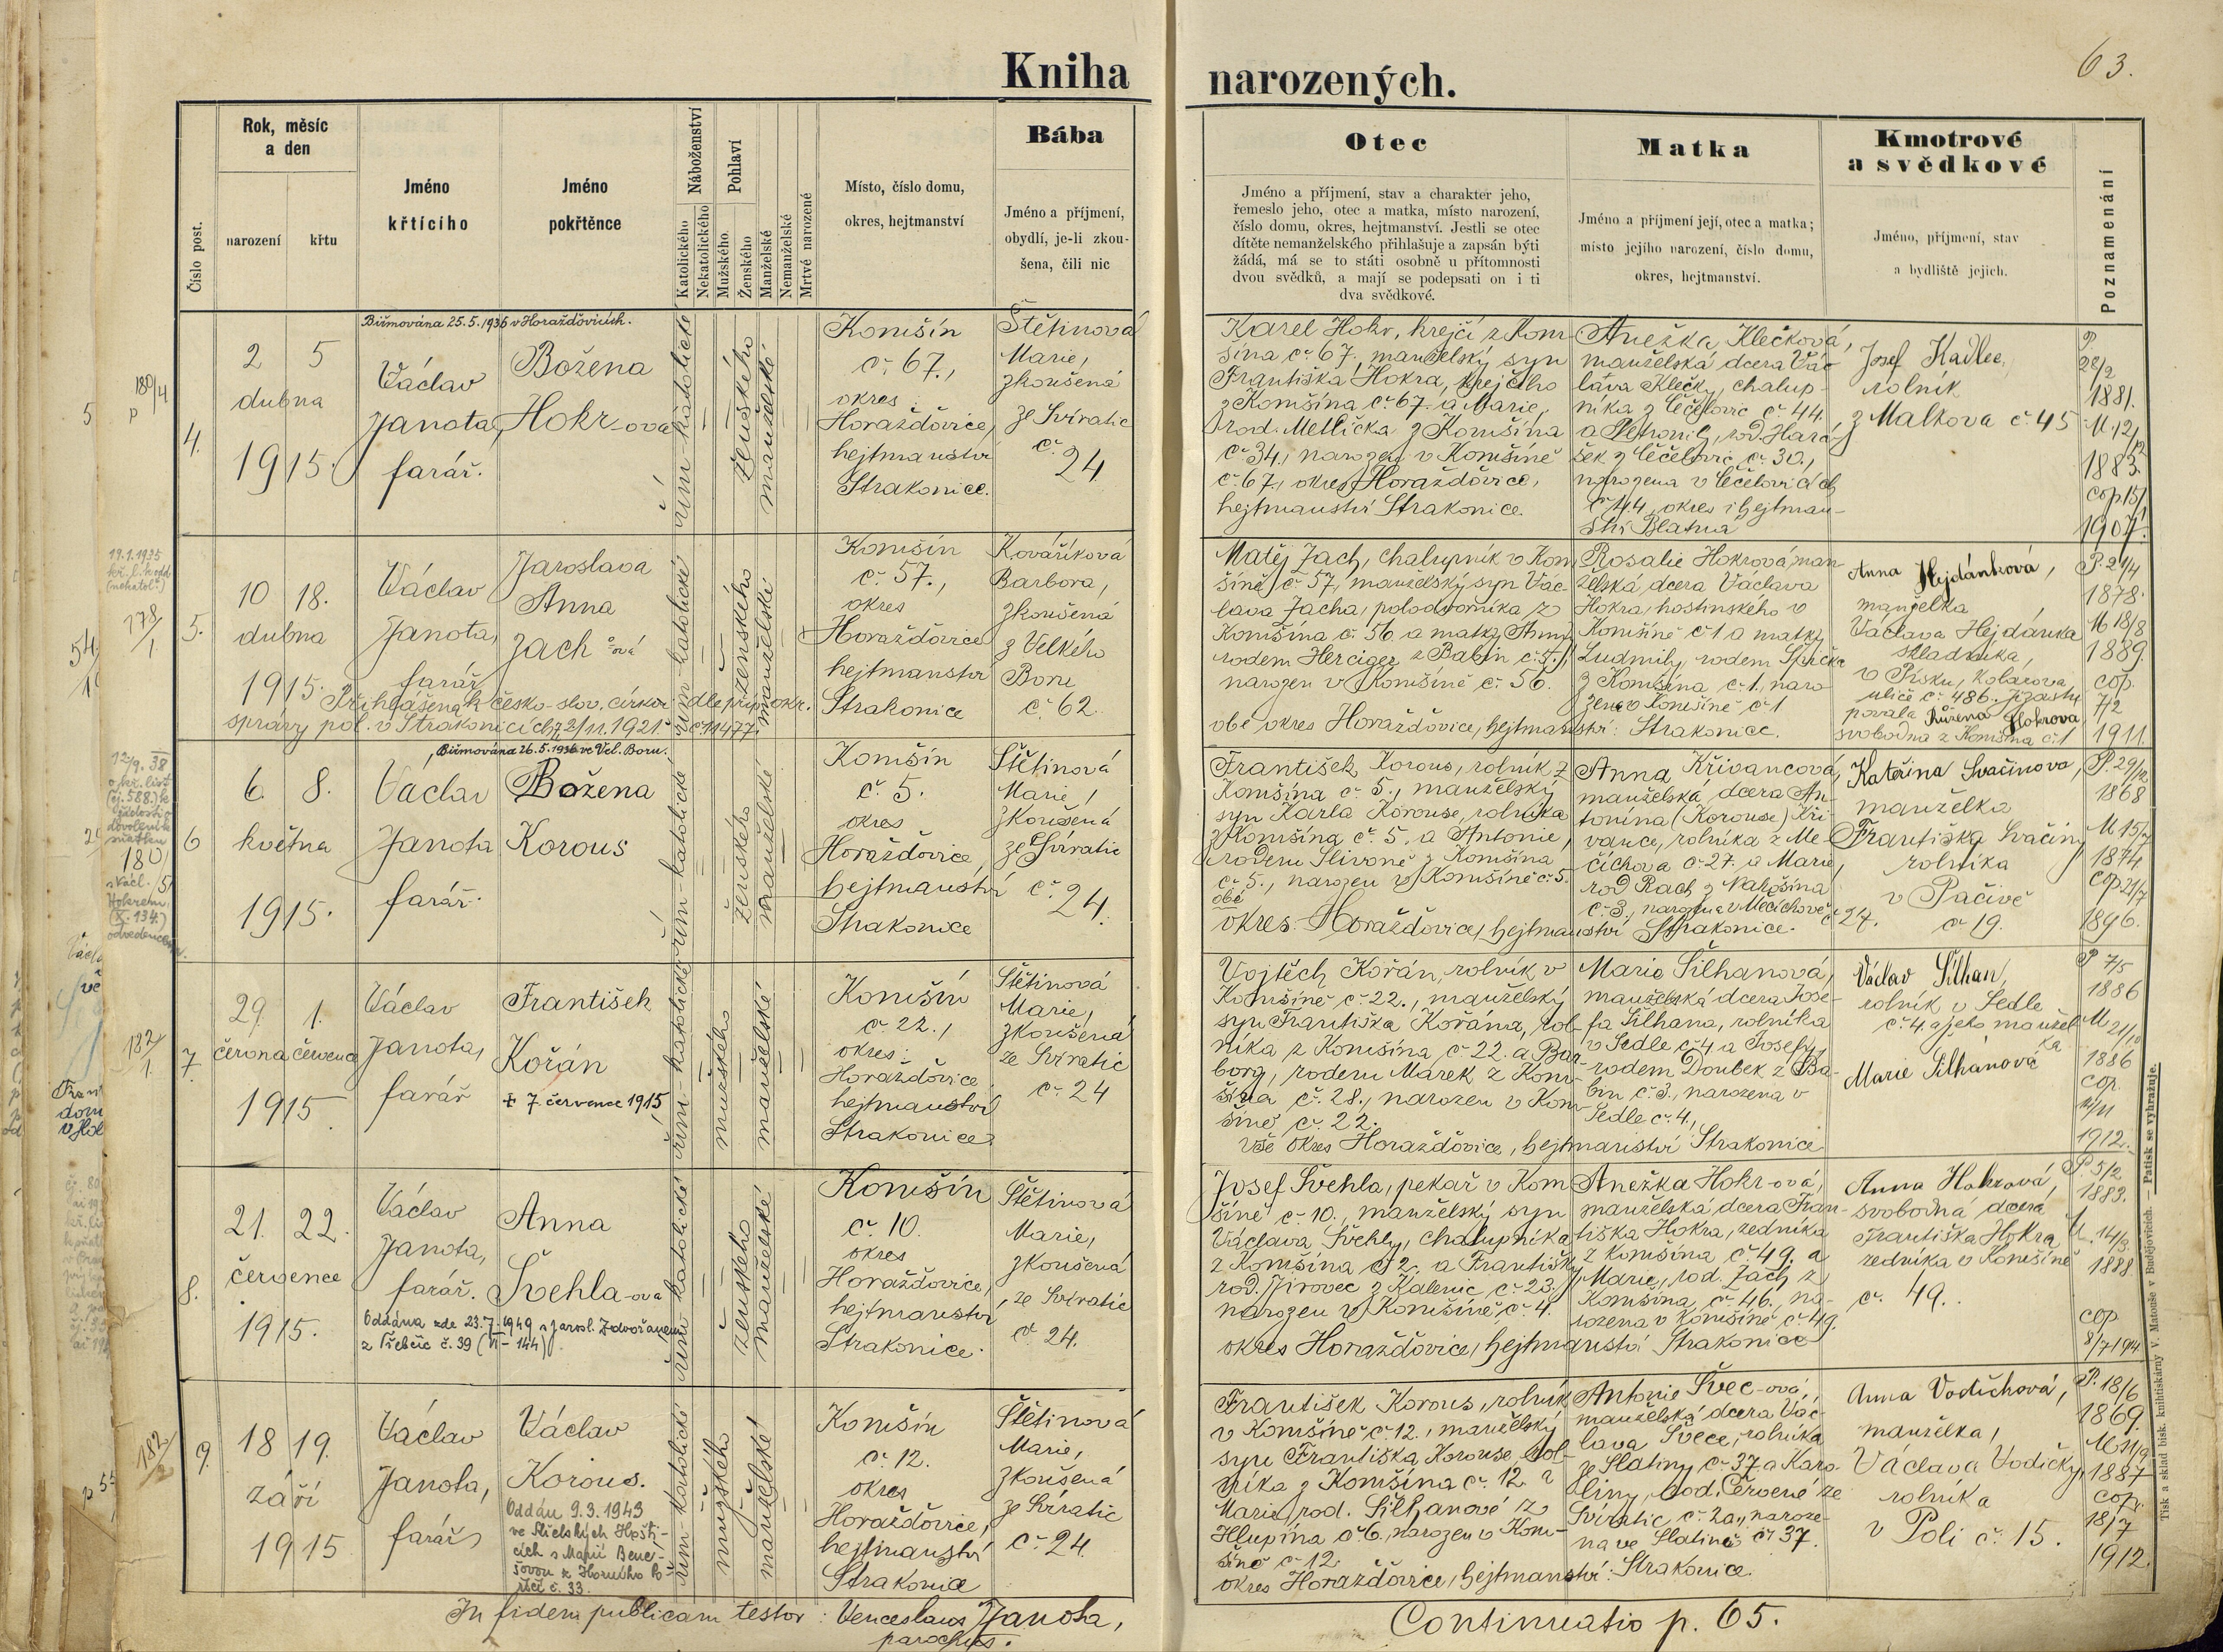 63.
Kniha narozených.
Číslo post.
Rok, měsíc
a den
narození
křtu
Jméno
křtícího
Jméno
pokřtěnce
Náboženství
Katolického
Nekatolického
Pohlaví
Mužského
Ženského
Manželské
Nemanželské
Mrtvé narozené
Místo, číslo domu,
okres, hejtmanství
Bába
Jméno a příjmení,
obydlí, je-li zkou-
šena, čili nic
Otec
Jméno a příjmení, stav a charakter jeho,
řemeslo jeho, otec a matka, místo narození,
číslo domu, okres, hejtmanství. Jestli se otec
dítěte nemanželského přihlašuje a zapsán býti
žádá, má se to státi osobně u přítomnosti
dvou svědků, a mají se podepsati on i ti
dva svědkové.
Matka
Jméno a příjmení její, otec a matka;
místo jejího narození, číslo domu,
okres, hejtmanství.
Kmotrové
a svědkové
Jméno, příjmení, stav
a bydliště jejich.
Poznamenání
180/4
4.
Biřmována 25.5.1936 v Horažďovicích.
2 5
dubna
1915.
Václav
Janota,
farář.
Božena
Hokr-ová
řím-katolické
ženského
manželské
Komšín
č. 67.,
okres
Horažďovice,
hejtmanství
Strakonice.
Štětinová
Marie,
zkoušená
ze Svíratic
č.
24
Karel Hokr, krejčí z Kom-
šína č. 67., manželský syn
Františka Hokra, krejčího
z Komšína č. 67. a Marie,
rod. Metlička z Komšína
č. 34., narozen v Komšíně
č. 67., okres Horažďovice,
hejtmanství Strakonice.
Anežka Klečková,
manželská dcera Vác-
lava Klečky, chalup-
níka z Čečelovic č. 44.
a Petronily, rod. Hará-
šek z Čečelovic č. 30.,
narozena v Čečelovicích
č. 44., okres i hejtman-
ství Blatná
Josef Kadlec,
rolník
z Malkova č. 45
P.
28/2
1881.
M. 12/12
1883.
cop. 15/
1907.
19.1.1935
178/1.
5.
10 18.
dubna
1915.
Václav
Janota,
farář
Jaroslava
Anna
Zach-ová
Přihlášena k česko-slov. církvi dle příp. okr.
správy pol. v Strakonicích z 2/11. 1921. č. 11477.
řím-katolické
ženského
manželské
Komšín
č. 57.,
okres
Horažďovice
hejtmanství
Strakonice
Kováříková
Barbora,
zkoušená
z Velkého
Boru
č. 62.
Matěj Zach, chalupník v Kom-
šíně č. 57, manželský syn Vác-
lava Zacha, polodvorníka z
Komšína č. 56 a matky Anny
rodem Herciger z Babín č. 5.,
narozen v Komšíně č. 56.
obé okres Horažďovice, hejtmanství: Strakonice.
Rosalie Hokrová, man-
želská dcera Václava
Hokra, hostinského v
Komšíně č. 1 a matky
Ludmily, rodem Špička
z Komšína č. 1., naro-
zena v Komšíně č. 1
Anna Hejdánková,
manželka
Václava Hejdánka
skladníka,
v Písku, Kolárova
ulice č. 486. Jí zastu-
povala Růžena Hokrova
svobodná z Komšína č. 1
P. 21/4
1878.
M 18/8
1889.
cop.
7/2
1911.
12/9. 38
180/5
6
Biřmována 26.5.1936 ve Vel. Boru.
6. 8.
května
1915.
Václav
Janota
farář.
Božena
Korous
řím-katolické
ženského
manželské
Komšín
č. 5.
okres
Horažďovice,
hejtmanství
Strakonice
Štětinová
Marie,
zkoušená
ze Svíratic
č.
24.
František Korous, rolník z
Komšína č. 5., manželský
syn Karla Korouse, rolníka
z Komšína č. 5. a Antonie,
rodem Slivoně z Komšína
č. 5., narozen v Komšíně č. 5.
obé
okres Horažďovice, hejtmanství Strakonice.
Anna Křivancová,
manželská dcera An-
tonína (Korouse) Kři-
vance, rolníka z Me-
číchova č. 27. a Marie,
rod. Rach z Nahošína
č. 3., narozena v Mečíchově
č. 27.
Kateřina Svačinova,
manželka
Františka Svačiny
rolníka
v Pačivě
č. 19.
P. 29/12
1868
M 15/7
1874
cop 21/7
1896.
182/1.
7.
29. 1.
června července
1915
Václav
Janota,
farář
František
Kořán
+ 7. července 1915
řím-katolické
mužského
manželské
Komšín
č. 22.,
okres
Horažďovice
hejtmanství
Strakonice
Štětinová
Marie,
zkoušená
ze Svíratic
č. 24
Vojtěch Kořán, rolník v
Komšíně č. 22., manželský
syn Františka Kořána, rol-
níka z Komšína č. 22. a Bar-
bory, rodem Marek z Kom-
šína č. 28., narozen v Kom-
šíně č. 22.
vše okres Horažďovice, hejtmanství Strakonice
Marie Šilhanová,
manželská dcera Jose-
fa Šilhana, rolníka
v Sedle č. 4 a Josefy,
rodem Doubek z Ba-
bín č. 3., narozena v
Sedle č. 4.,
Václav Šilhan,
rolník v Sedle
č. 4. a jeho manžel-
ka
Marie Šilhánová
P 7/5
1886
M. 21/10
1886
cop.
12/11
1912.
8.
21. 22.
července
1915.
Václav
Janota,
farář.
Anna
Švehla-ova
Oddána zde 23.7.1949 s Jarosl. Zdvořanem
z Třebčic č. 39 (VI - 144).
řím-katolické
ženského
manželské
Komšín
č. 10.
okres
Horažďovice,
hejtmanství
Strakonice.
Štětinová
Marie,
zkoušená
ze Svíratic
č. 24.
Josef Švehla, pekař v Kom-
šíně č. 10., manželský syn
Václava Švehly, chalupníka
z Komšína č. 2. a Františky
rod. Jírovec z Kalenic č. 23.,
narozen v Komšíně č. 4.
okres Horažďovice, hejtmanství Strakonice
Anežka Hokr-ová,
manželská dcera Fran-
tiška Hokra, zedníka
z Komšína č. 49. a
Marie, rod. Zach z
Komšína č. 46., na-
rozena v Komšíně č. 49.
Anna Hokrová,
svobodná dcera
Františka Hokra
zedníka v Komšíně
č. 49.
P. 5/2
1883.
M. 14/9.
1888
cop.
8/7 1914
182/2
9.
18 19.
září
1915
Václav
Janota,
farář
Václav
Korous.
Oddán 9.3.1943
ve Slelských Hošti-
cích s Marií Bene-
šovou z Horního Po-
říčí č. 33.
řím-katolické
mužského
manželské
Komšín
č. 12.
okres
Horažďovice,
hejtmanství
Strakonice
Štětinová
Marie,
zkoušená
ze Svíratic
č. 24.
František Korous, rolník
v Komšíně č. 12., manželský
syn Františka Korouse, rol-
níka z Komšína č. 12. a
Marie, rod. Šilhanové z
Hlupína č. 6., narozen v Kom-
šíně č. 12.
okres Horažďovice, hejtmanství: Strakonice.
Antonie Švec-ová,
manželská dcera Vác-
lava Švece, rolníka
ze Slatiny č. 37 a Karo-
liny, rod. Červené ze
Svíratic č. 2a,, naroze-
na ve Slatině č. 37.
Anna Vodičková,
manželka,
Václava Vodičky,
rolníka
v Poli č. 15.
P. 18/6
1869.
1887
cop.
18/7
1912.
In fidem publicam testor: Venceslaus Janota,
parochus.
Continuatio p. 65.
Tisk a sklad bisk. knihtiskárny V. Matouše v Budějovicích. — Patisk se vyhražuje.